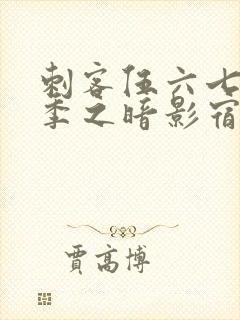 刺客伍六七
季之暗影宿
贾高博